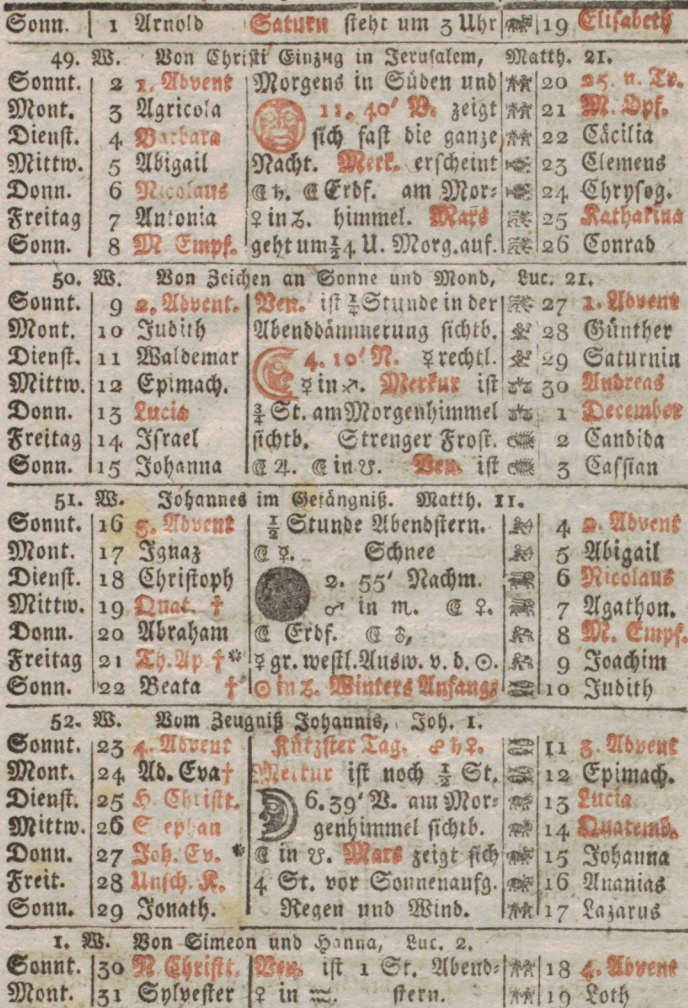 Sonn. 1 Arnold Saturn ſteht um 3 Uhr 19 Eliſabeth
49. W. Von Chriſti Einzug in Jeruſalem, Matth. 21.
Sonnt. 2 1. Advent Morgens in Süden und 20 25. n. Tr.
Mont. 3 Agricola 11. 40' V. zeigt 21 M. Opf.
Dienſt. 4 Barbara ſich faſt die ganze 22 Cäcilia
Mittw. 5 Abigail Nacht. Merk. erſcheint 23 Clemens
Donn. 6 Nicolaus ☾ ♄. ☾ Erdf. am Mor⸗ 24 Chryſog.
Freitag 7 Antonia ♀ in ♑. himmel. Mars 25 Katharina
Sonn. 8 M Empf. geht um ½4 U. Morg. auf. 26 Conrad
50. W. Von Zeichen an Sonne und Mond, Luc. 21.
Sonnt. 9 2. Advent. Ven. iſt ¼ Stunde in der 27 1. Advent
Mont. 10 Judith Abenddämmerung ſichtb. 28 Günther
Dienſt. 11 Waldemar 4. 10' N. ☿ rechtl. 29 Saturnin
Mittw. 12 Epimach. ☿ in ♐. Merkur iſt 30 Andreas
Donn. 13 Lucia ¾ St. am Morgenhimmel 1 December
Freitag 14 Iſrael ſichtb. Strenger Froſt. 2 Candida
Sonn. 15 Johanna ☾ ♃. ☾ in ☋. Ven. iſt 3 Caſſian
51. W. Johannes im Gefängniß. Matth. 11.
Sonnt. 16 3. Advent ½ Stunde Abendſtern. 4 2. Advent
Mont. 17 Ignaz ☾ ☿. Schnee 5 Abigail
Dienſt. 18 Chriſtoph 2. 55' Nachm. 6 Nicolaus
Mittw. 19 Quat. † ♂ in ♏. ☾ ♀. 7 Agathon.
Donn. 20 Abraham ☾ Erdf. ☾ ♂, 8 M. Empf.
Freitag 21 Th. Ap † * ☿ gr. weſtl. Ausw. v. d. ☉. 9 Joachim
Sonn. 22 Beata † ☉ in ♑. Winters Anfang 10 Judith
52. W. Vom Zeugniß Johannis, Joh. 1.
Sonnt. 23 4. Advent Kützſter Tag. ☍ ♄ ♀. 11 3. Advent
Mont. 24 Ad. Eva † Merkur iſt noch ½ St. 12 Epimach.
Dienſt. 25 H Chriſtt. 6. 39' V. am Mor⸗ 13 Lucia
Mittw. 26 Stephan genhimmel ſichtb. 14 Quatemb.
Donn. 27 Joh. Ev. * ☾ in ☋. Mars zeigt ſich 15 Johanna
Freit. 28 Unſch. K. 4 St. vor Sonnenaufg. 16 Ananias
Sonn. 29 Jonath. Regen und Wind. 17 Lazarus
1. W. Von Simeon und Hanna, Luc. 2.
Sonnt. 30 N. Chriſtt. Ven. iſt 1 St. Abend⸗ 18 4. Advent
Mont. 31 Sylveſter ♀ in ♒. ſtern. 19 Loth